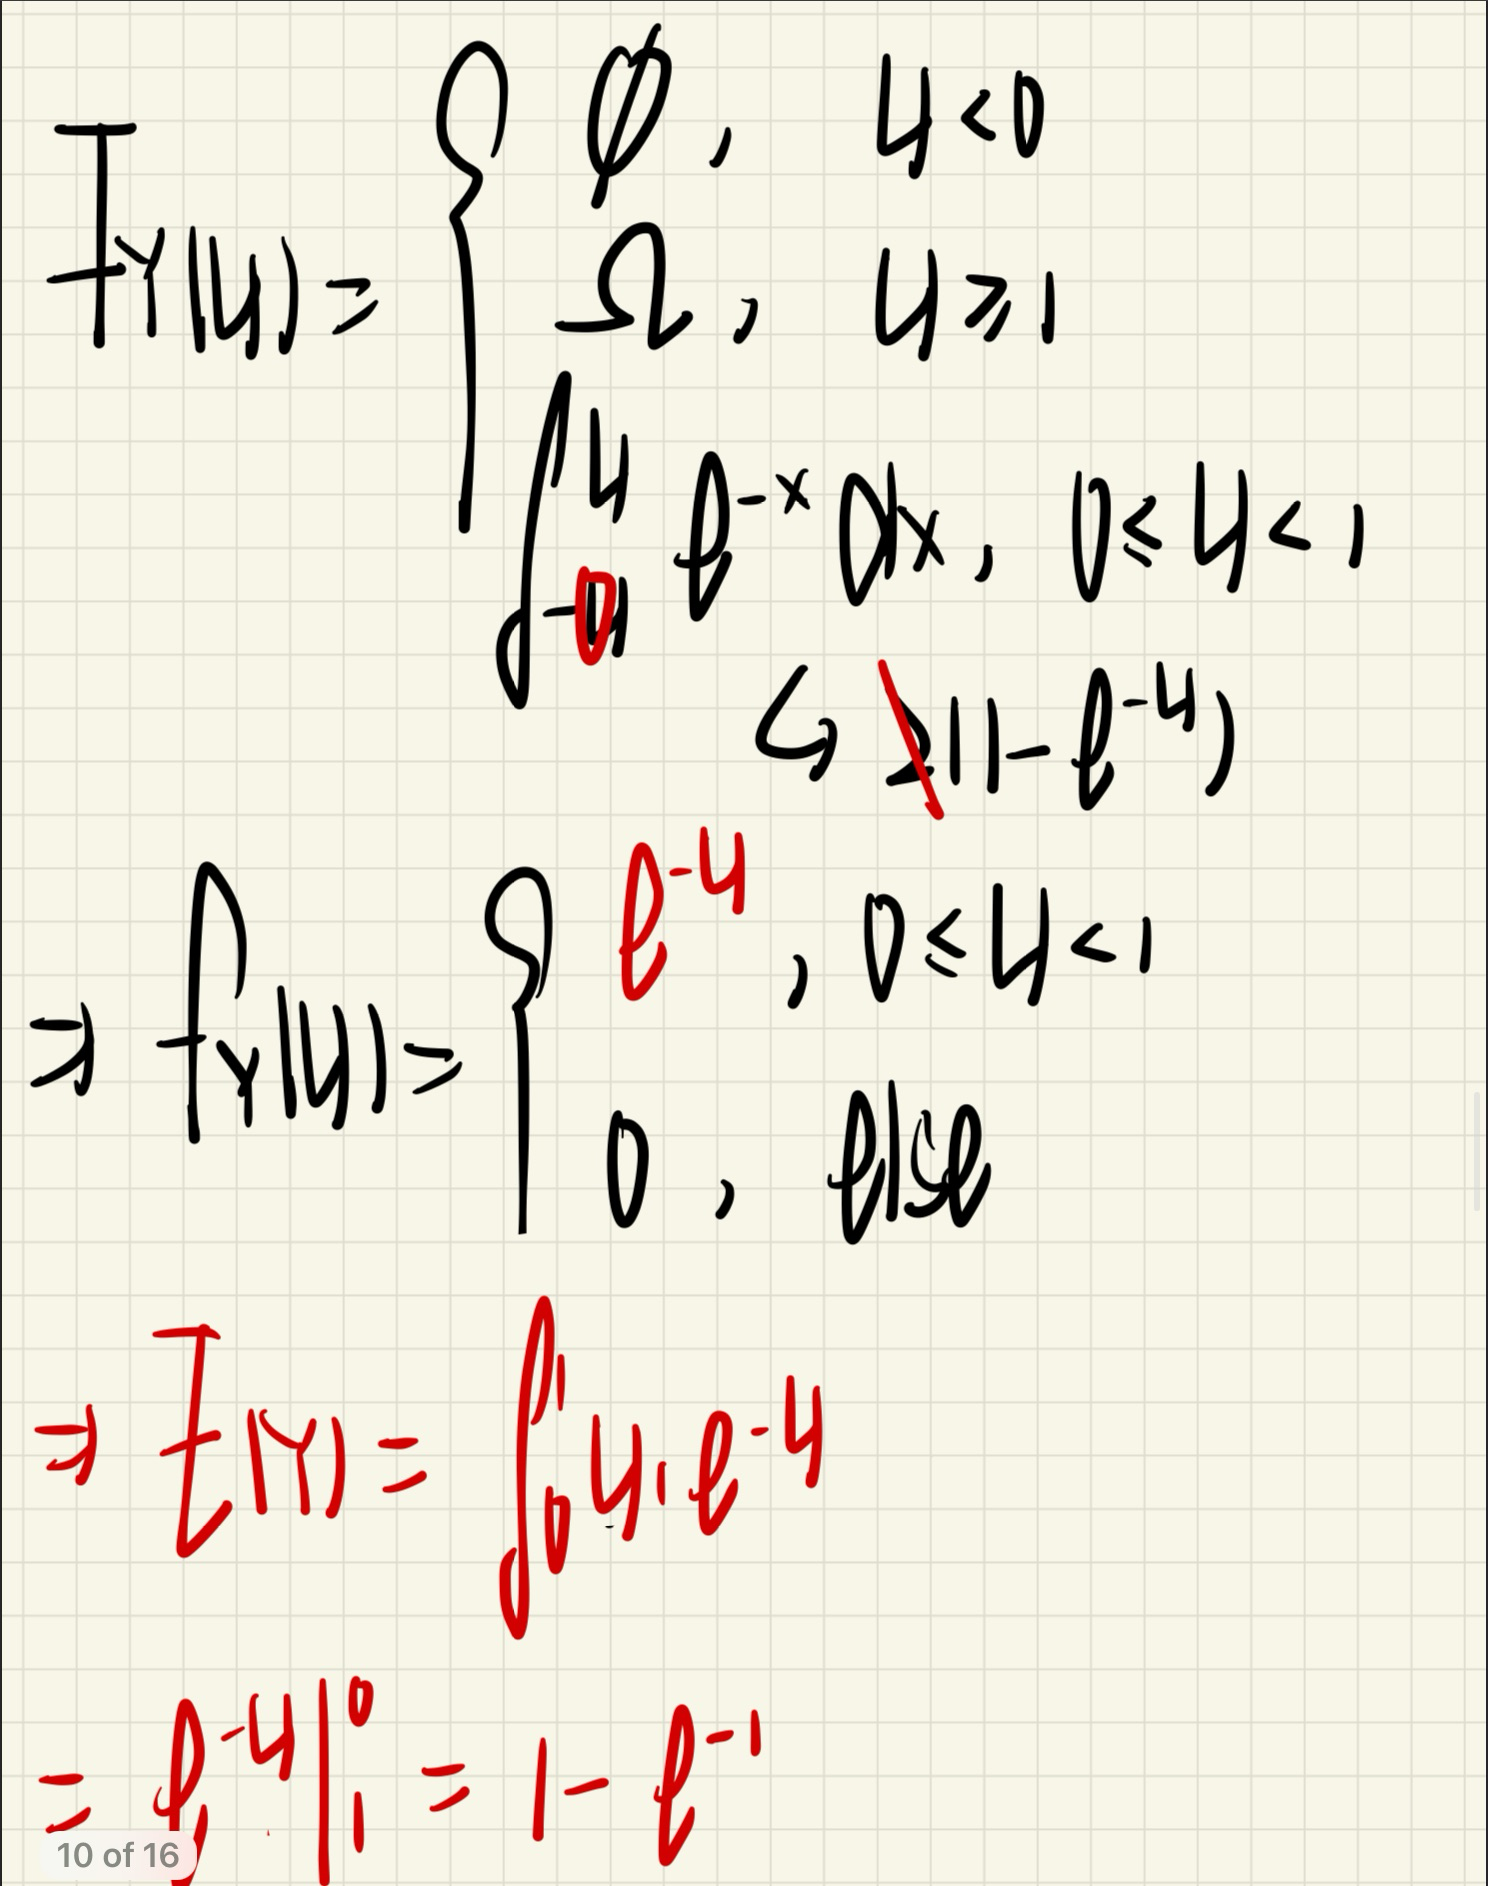 F_Y(y) = { ∅, y<0
Ω, y≥1
∫_{-0}^{y} e^{-x} dx, 0≤y<1
↳ 2(1-e^{-y})
⇒ f_Y(y) = { e^{-y}, 0≤y<1
0, else
⇒ E(Y) = ∫_0^1 y·e^{-y}
= e^{-y}|_1^0 = 1-e^{-1}
10 of 16